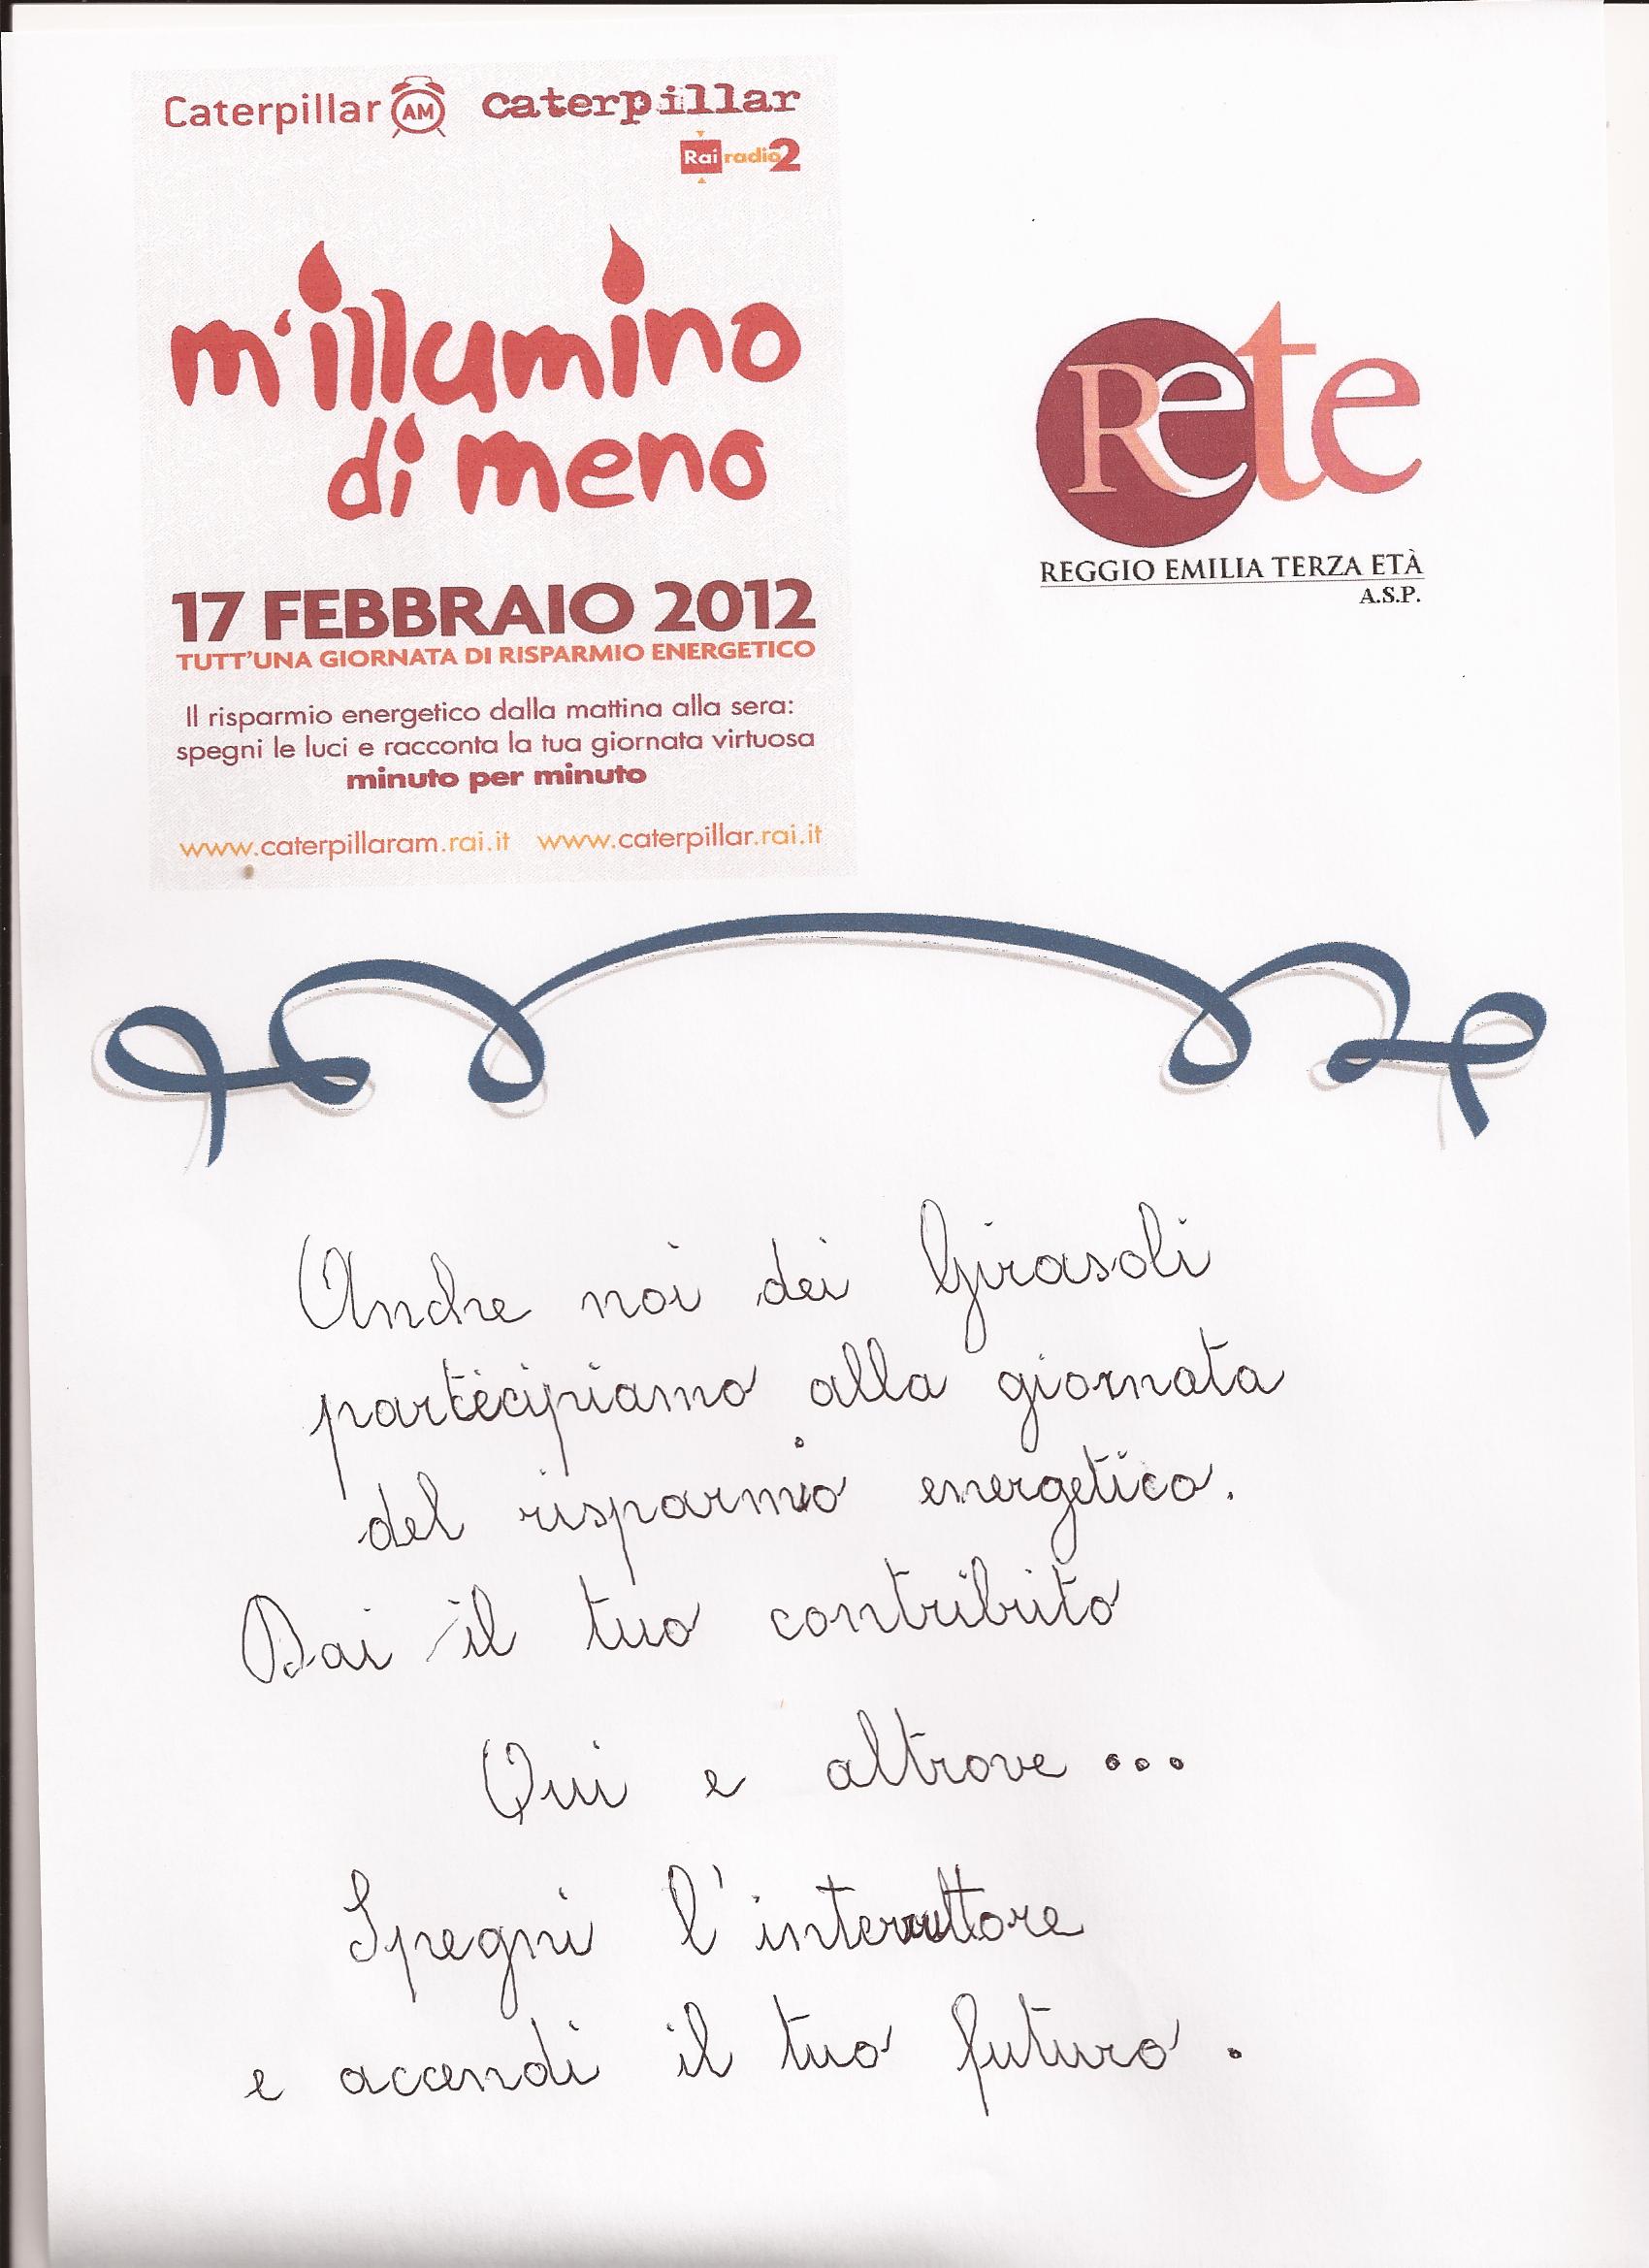 Caterpillar AM caterpillar
Rai radio2
m'illumino
di meno
17 FEBBRAIO 2012
TUTT'UNA GIORNATA DI RISPARMIO ENERGETICO
Il risparmio energetico dalla mattina alla sera:
spegni le luci e racconta la tua giornata virtuosa
minuto per minuto
www.caterpillaram.rai.it www.caterpillar.rai.it
Rete
REGGIO EMILIA TERZA ETÀ
A.S.P.
Anche noi dei Girasoli
partecipiamo alla giornata
del risparmio energetico.
Dai il tuo contributo
Qui e altrove...
Spegni l'interruttore
e accendi il tuo futuro.